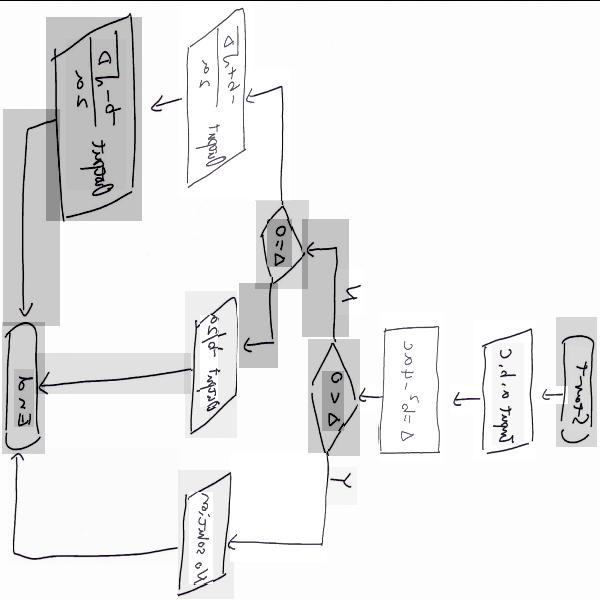 Start
Input a, b, c
Δ = b² - 4ac
Δ < 0
Y
N
No solution
Δ = 0
Output -b/2a
Output -b+√Δ / 2a
Output -b-√Δ / 2a
End